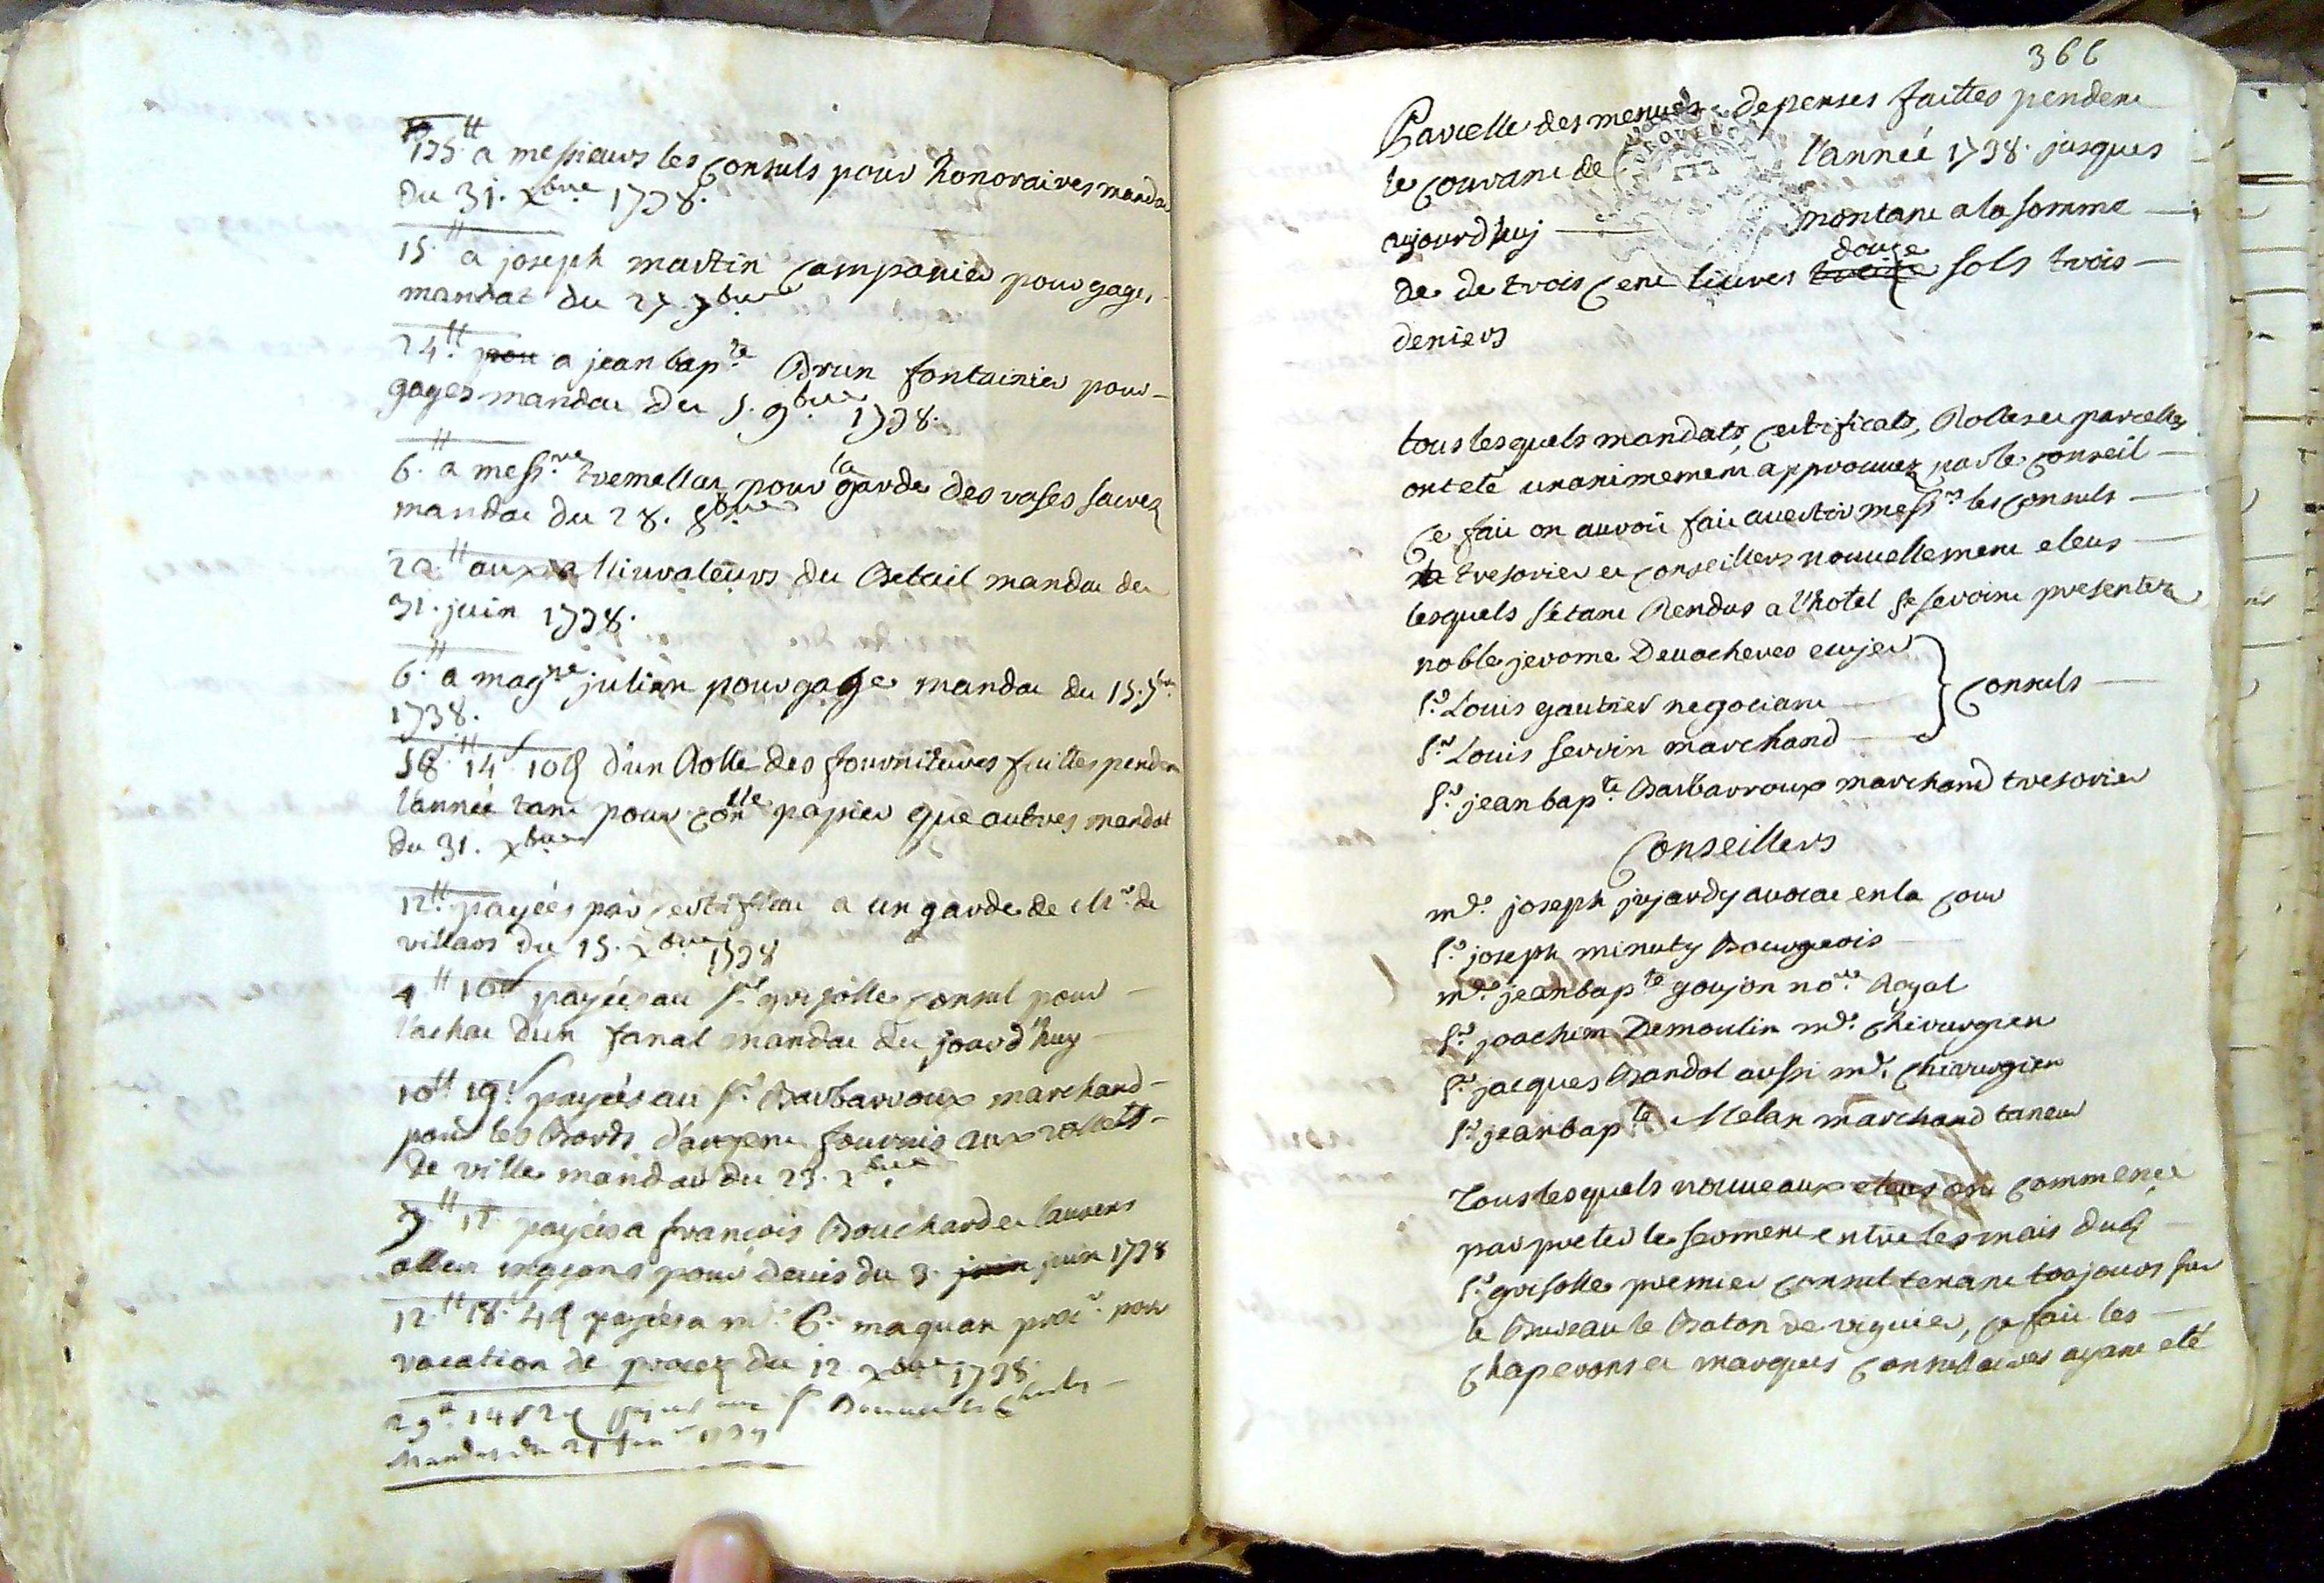 175.ᵗᵗ a messieurs les consuls pour honoraires mandat
du 31. xbre. 1738.
15.ᵗᵗ a joseph martin campanier pour gages
mandat du 27. 7bre
24.ᵗᵗ pou a jean bapte. Brun fontainier pour
gages mandat du 5. 9bre. 1738.
6.ᵗᵗ a messre. tremellat pour la garde des vases sacrez
mandat du 28. 8bre
22.ᵗᵗ aux allivrateurs du Betail mandat du
31. juin 1738.
6.ᵗᵗ a magne julian pour gage mandat du 15. 7bre.
1738.
58.ᵗᵗ 14ˢ 10ᵈ d'un Rolle des fournitures faittes pendent
l'année tant pour con papier que autres mandat
du 31. xbre
12.ᵗᵗ payées par certificat a un garde de Mr. de
villars du 15. xbre 1738
4ᵗᵗ 10ˢ payées au Sr. grisolle consul pour
l'achat d'un fanal mandat du jourd'huy
10ᵗᵗ 19ˢ payées au Sr. Barbarroux marchand
pour les Bords d'argent fournis aux vallets
de ville mandat du 23. xbre.
payées a françois Bouchard et laurens
pour devis du 3. juin juin 1738
12.ᵗᵗ 18.ˢ 4ᵈ payées a mr. maquan procr. pour
vacation de procez du 12. xbre 1738.
29ᵗᵗ 14ˢ 2ᵈ
Mandat du
366
Parcelle des menues depenses faittes pendent
le courant de l'année 1738. jusques
aujourd'huj montant a la somme
de de trois cent livres treize douze sols trois
deniers
tous lesquels mandats, certificats, Rolles et parcelles
ont eté unanimement approuvez par le conseil
Ce fait on auroit fait avertir messrs les consuls
tresorier et conseillers nouvellement eleus
lesquels s'etant Rendus a l'hotel se seroint presentez
noble jerome Devacheres ecujer
Sr. Louis gautier negociant
Consuls
Sr. Louis serrin marchand
Sr. jean bapte. Barbarroux marchand tresorier
Conseillers
me. joseph jujardy avocat en la cour
Sr. joseph minuty Bourgeois
me. jean bapte goujon nore. Royal
Sr. joachim Demoulin me. chirurgien
Sr. jacques Bandol aussi me. chirurgien
Sr. jean bapte Melan marchand taneur
Tous lesquels nouveaux eleus ont commencé
par preter le serment entre les mais dud.
Sr. grisolle premier consul tenant toujours sur
le Bureau le Baton de viguier, ce fait les
chaperons et marques consulaires ayant eté